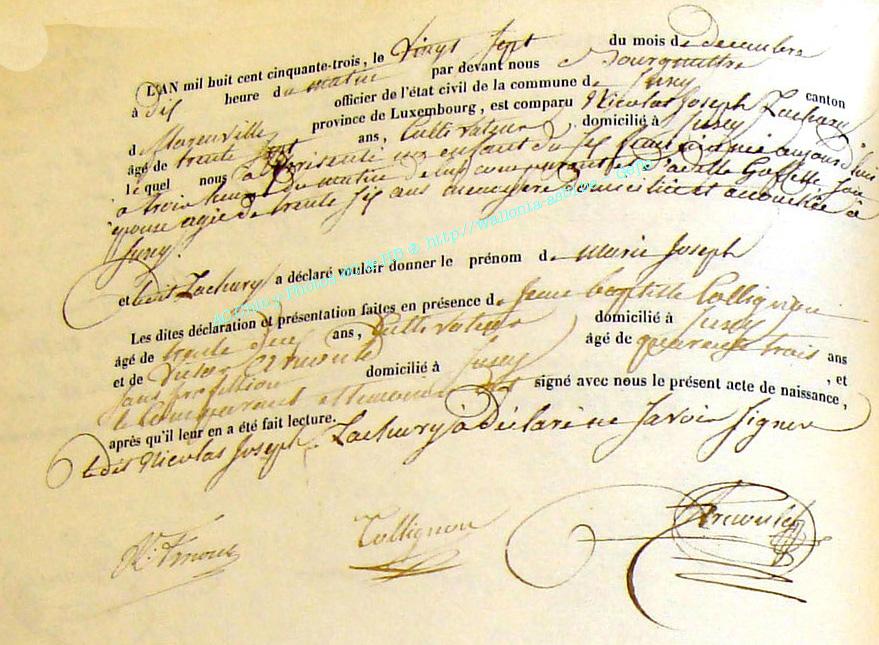 L'AN mil huit cent cinquante-trois, le vingt sept du mois de decembre
à dix heure du matin par devant nous Bourgmestre
officier de l'état civil de la commune de canton
d province de Luxembourg, est comparu Nicolas Joseph Zachary
âgé de trente sept ans, Cultivateur domicilié à
lequel nous à présenté un enfant du féminin née aujourd'hui
à trois heures du matin de lui comparant et
épouse agée de trente six ans menagere domiciliée et accouchée à
et ledit Zachary a déclaré vouloir donner le prénom de Marie Joseph
Les dites déclaration et présentation faites en présence de Jean baptiste Collignon
âgé de trente ans, Cultivateur domicilié à
et de Victor âgé de quarante trois ans
sans profession domicilié à , et
le Comparant et temoins ont signé avec nous le présent acte de naissance,
après qu'il leur en a été fait lecture.
Ledit Nicolas Joseph Zachary à déclaré ne savoir signer
Collignon